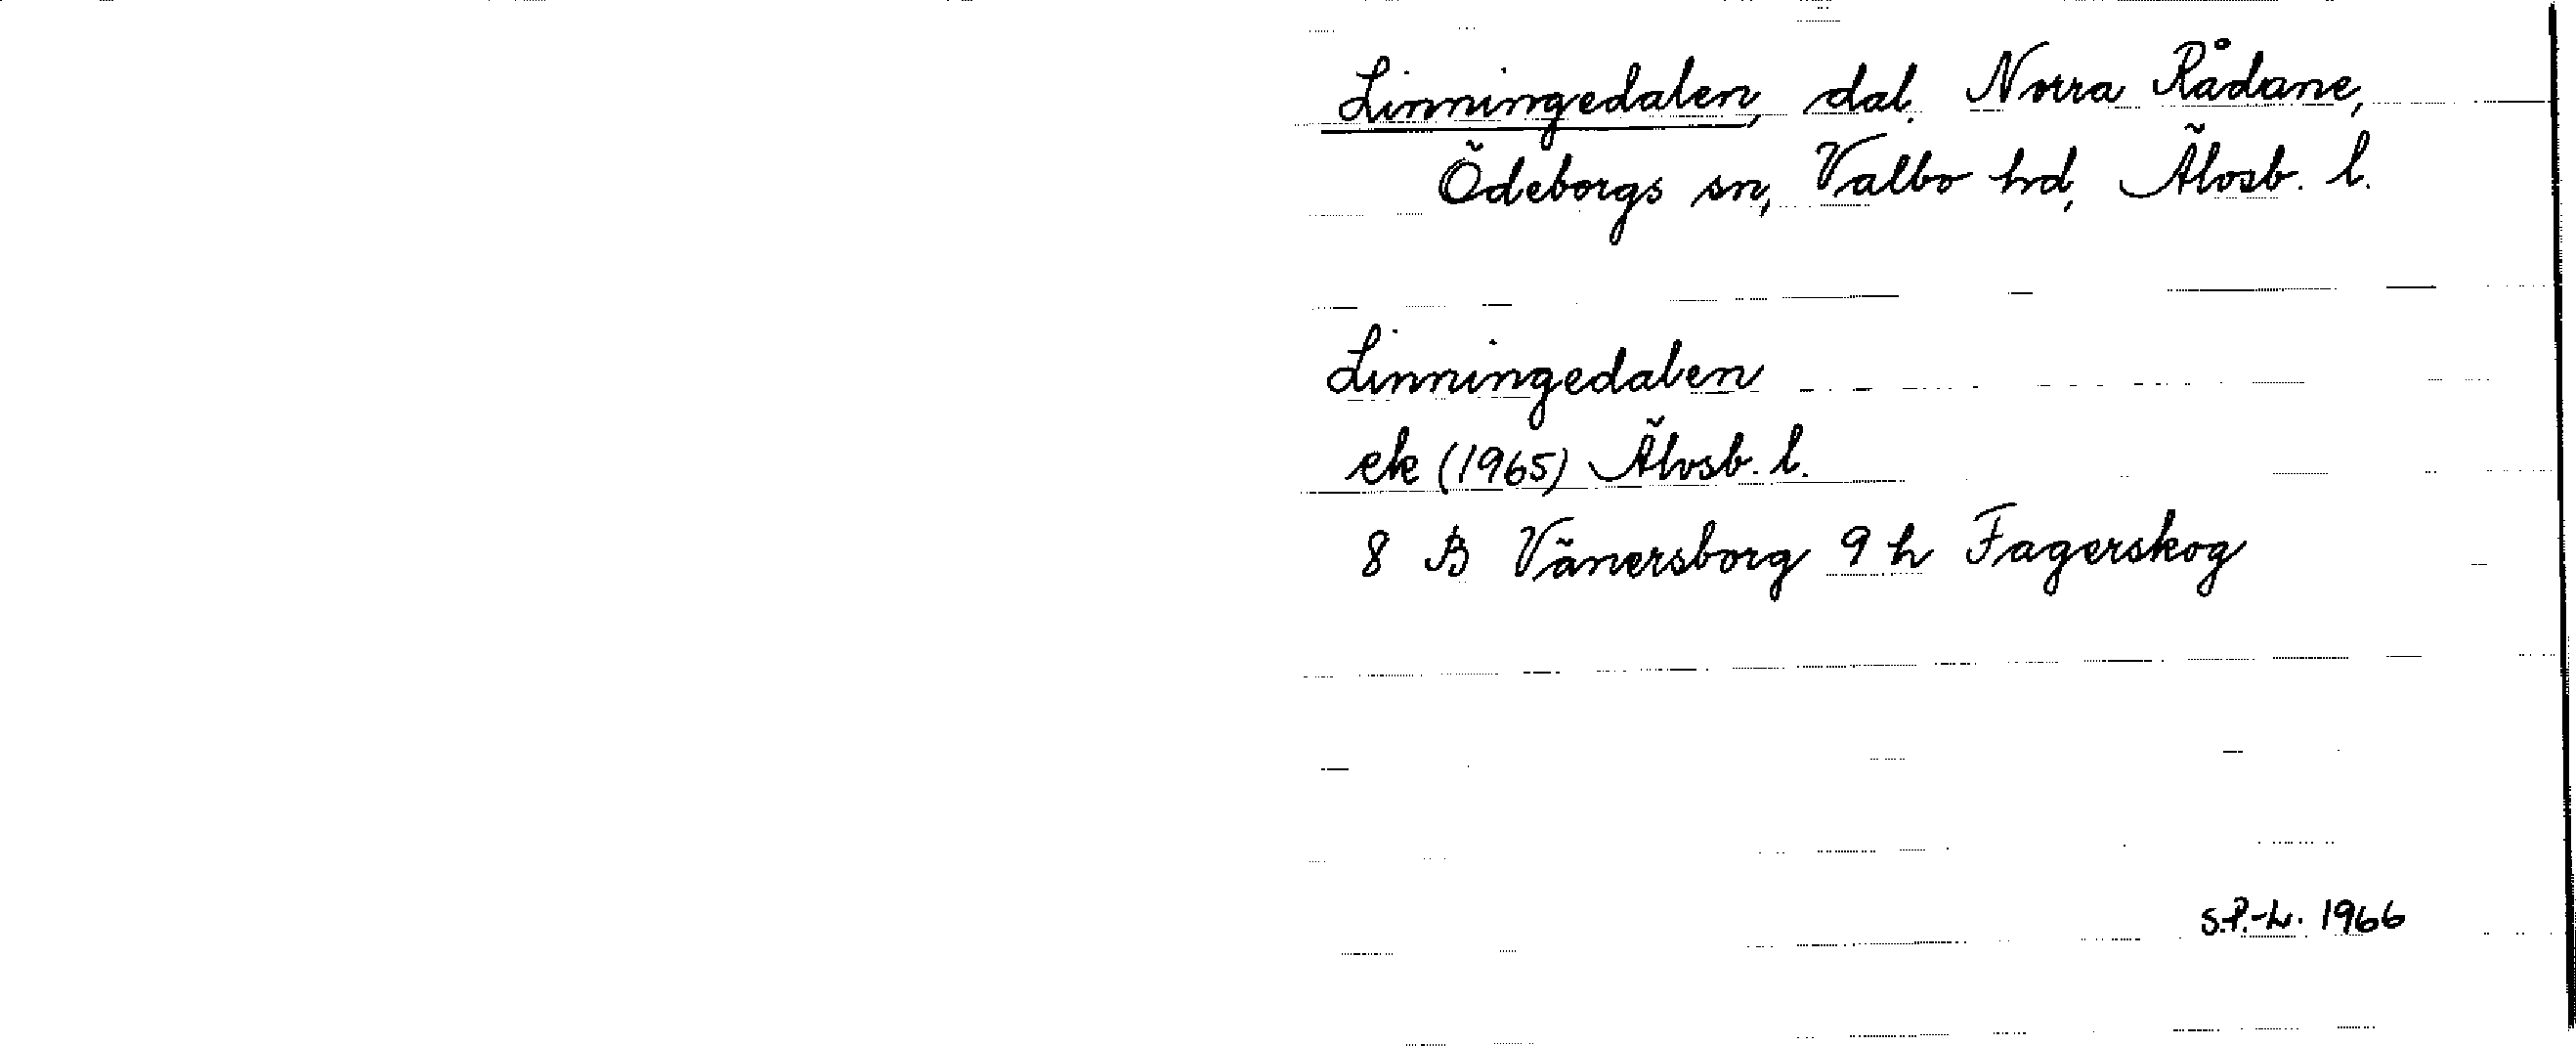 Linningedalen, dal, Norra Rådane,
Ödeborgs sn, Valbo hd, Älvsb. l.
Linningedalen
ek (1965) Älvsb. l.
8 B Vänersborg 9 h Fagerskog
S.P.-L. 1966